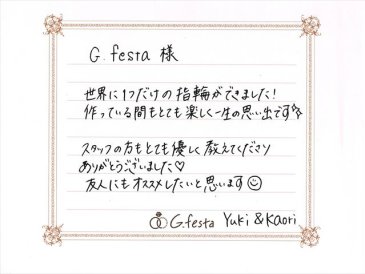 G.festa 様
世界に1つだけの指輪ができました!
作っている間もとても楽しく一生の思い出です☆
スタッフの方もとても優しく教えてくださり
ありがとうございました♡
友人にもオススメしたいと思います☺
G.festa Yuki & Kaori